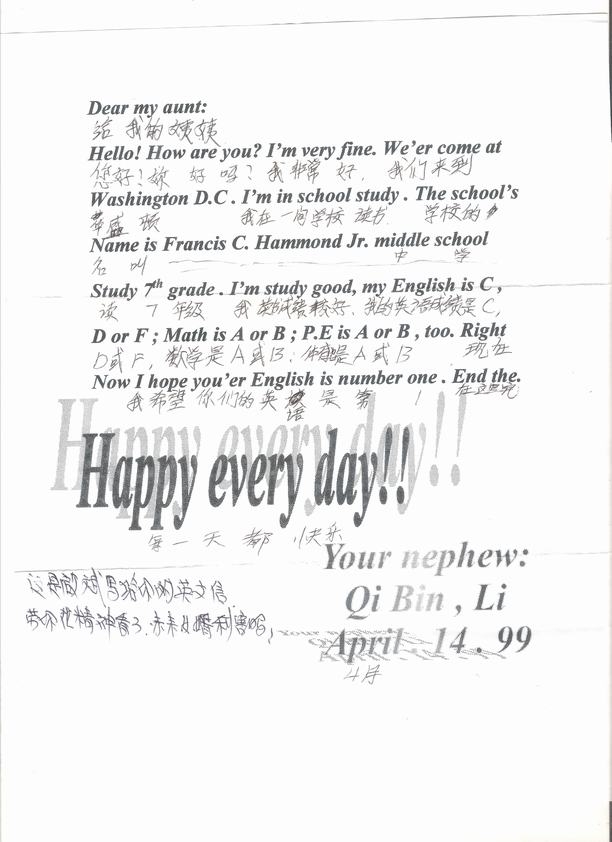 Dear my aunt:
给 我的 姨姨
Hello! How are you? I'm very fine. We'er come at
您好! 你 好 吗? 我 非常 好. 我们 来到
Washington D.C . I'm in school study . The school's
华盛 顿 我在 一间 学校 读书. 学校的
Name is Francis C. Hammond Jr. middle school
名 叫 中 学
Study 7th grade . I'm study good, my English is C ,
读 7 年级 我 较好. 我的英语成绩是 C,
D or F ; Math is A or B ; P.E is A or B , too. Right
D或 F, 数学是 A 或 B; 体育是 A 或 B 现在
Now I hope you'er English is number one . End the.
我 希望 你们的 英 语 是 第 1
Happy every day!!
每 一 天 都 快乐
Your nephew:
Qi Bin , Li
April . 14 . 99
4月
这是 写给你的英文信